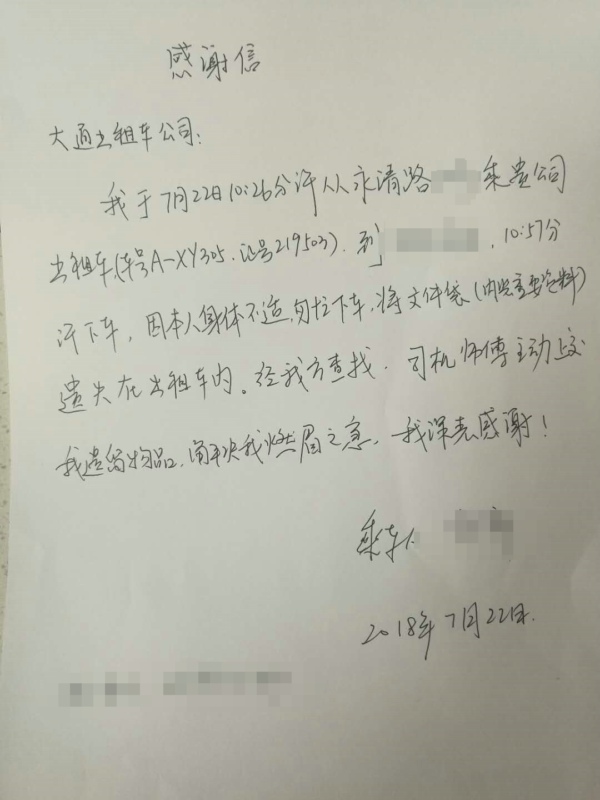 感谢信
大通出租车公司:
我于7月22日10:26分许从永清路 乘贵公司
出租车(车号A-XY305.证号219503).到 ,10:57分
许下车,因本人身体不适,匆忙下车,将文件袋(内装重要资料)
遗失在出租车内。经我方查找.司机师傅主动上交
我遗留物品,解决我燃眉之急,我深表感谢!
乘车人
2018年7月22日.